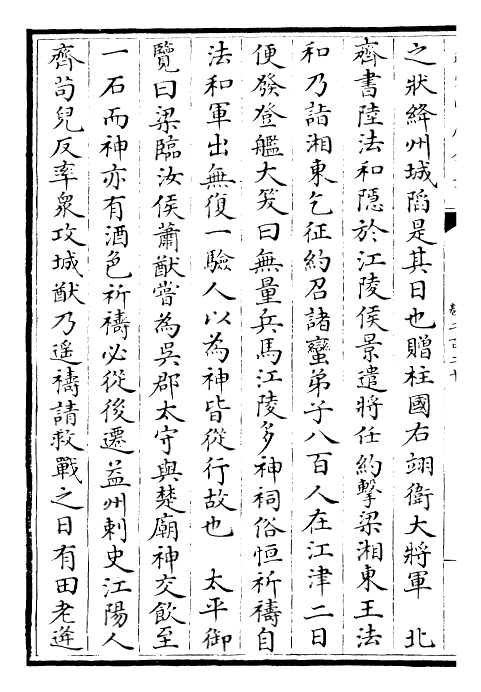 之狀絳州城䧟是其日也贈柱國右翊衛大將軍　北
齊書陸法和隱於江陵侯景遣將任約擊梁湘東王法
和乃詣湘東乞征約召諸蠻弟子八百人在江津二日
便發登艦大笑曰無量兵馬江陵多神祠俗恒祈禱自
法和軍出無復一驗人以為神皆從行故也　太平御
覽曰梁臨汝侯蕭猷嘗為吳郡太守與楚廟神交飲至
一石而神亦有酒色祈禱必從後遷益州刺史江陽人
齊苟兒反率衆攻城猷乃遥禱請救戰之日有田老逢